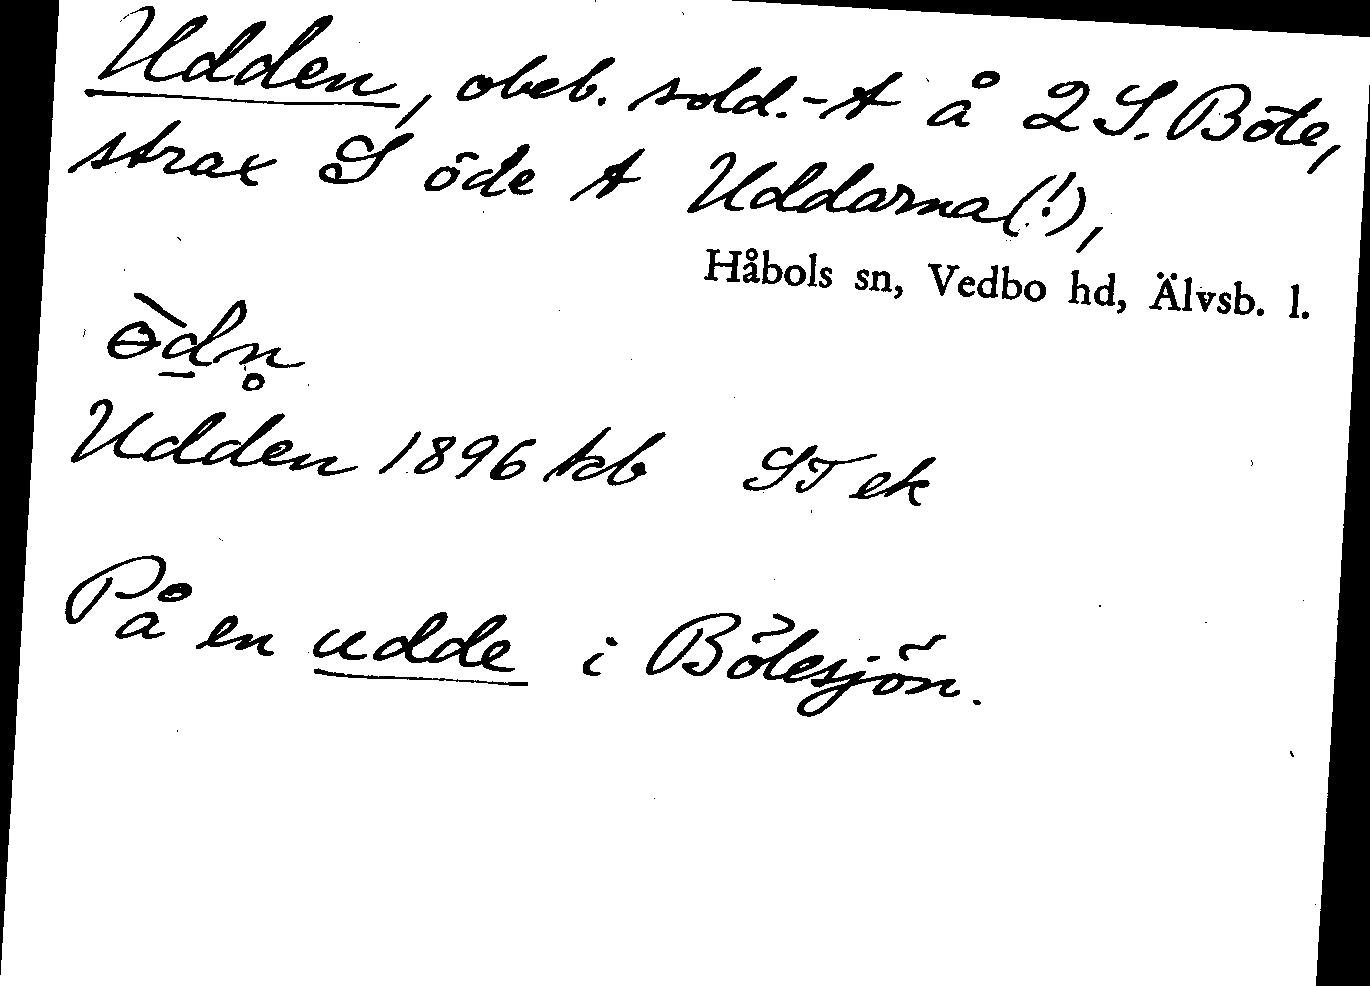 Udden, obeb. sold.-t å 2 S. Böle,
strax S öde t Uddarna(!),
Håbols sn, Vedbo hd, Älvsb. l.
ɵ̀d̲n̥
Udden 1896 kb ST ek
På en udde i Bölesjön.